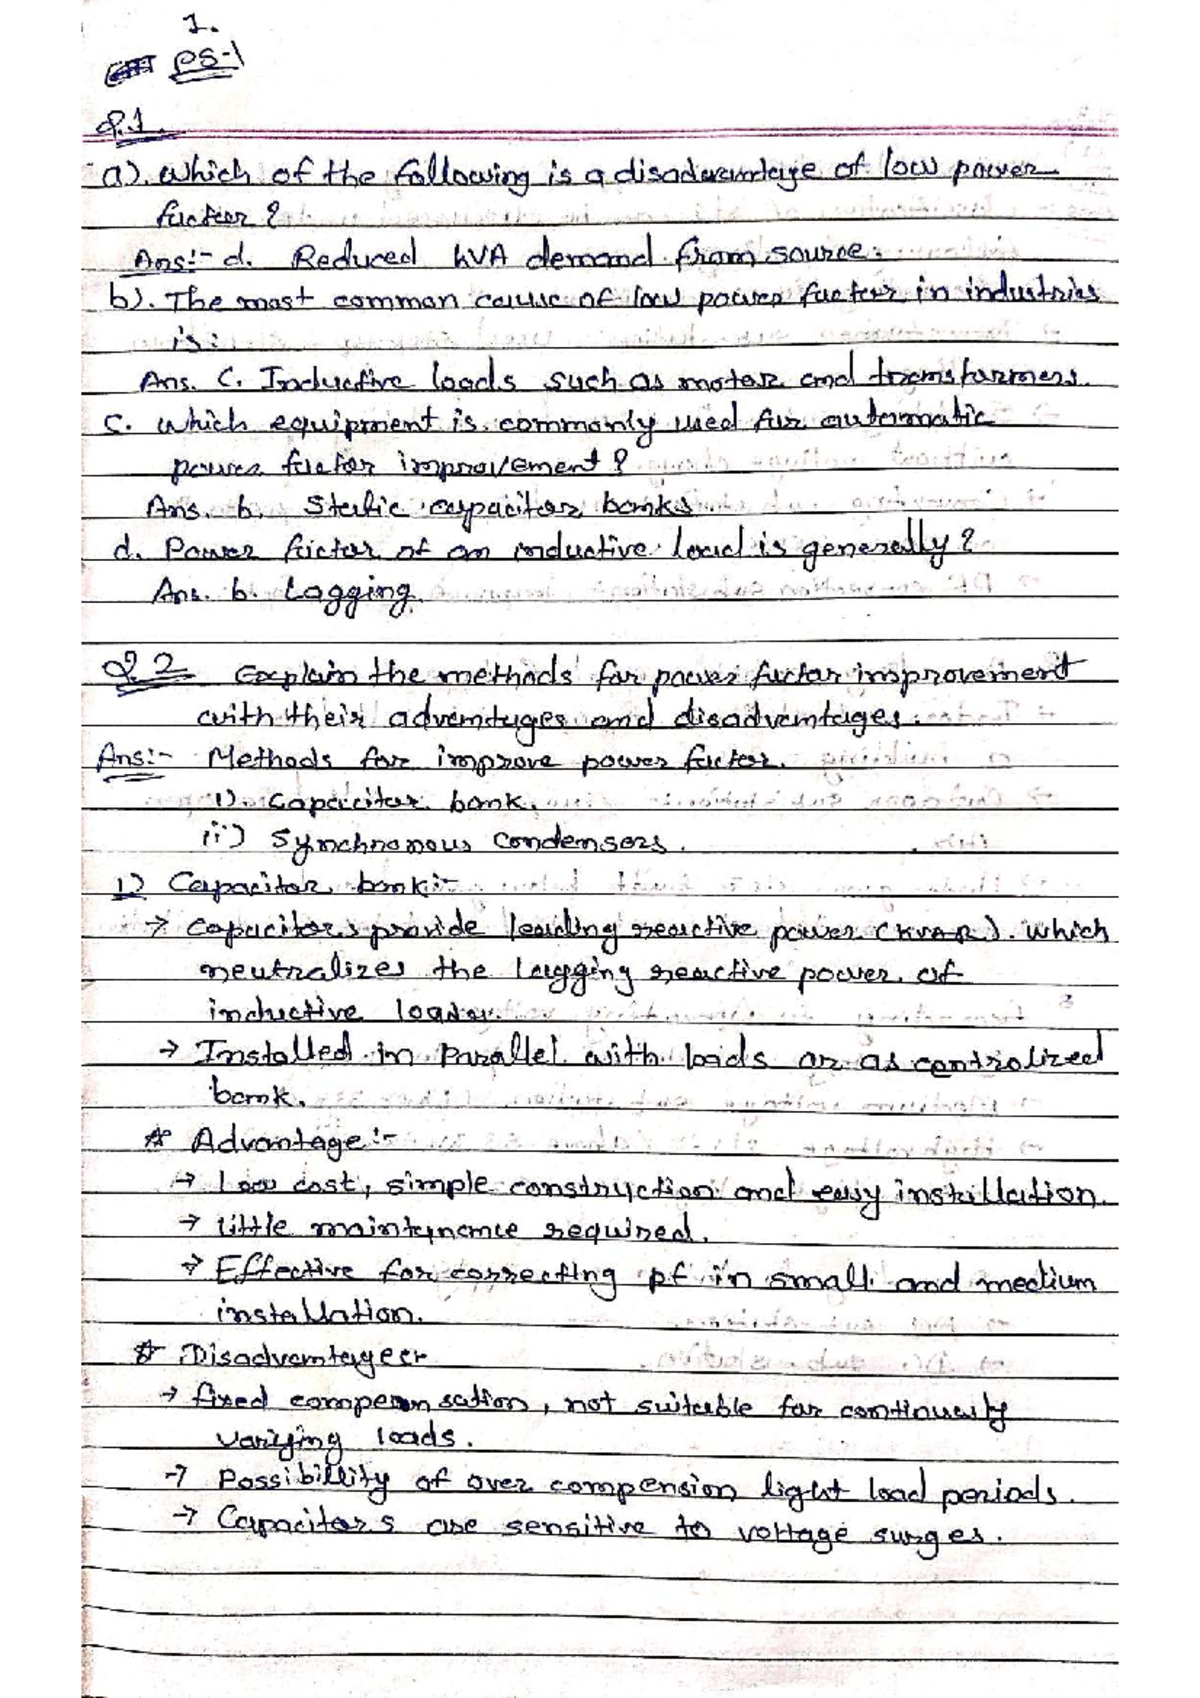 1.
PS-1
Q.1.
a). Which of the following is a disadvantage of low power
factor?
Ans:- d. Reduced kVA demand from source.
b). The most common cause of low power factor in industries
is:
Ans. C. Inductive loads such as motor and transformers.
c. Which equipment is commonly used for automatic
power factor improvement?
Ans. b. Static capacitor banks
d. Power factor of an inductive load is generally?
Ans. b. Lagging.
Q.2 Explain the methods for power factor improvement
with their advantages and disadvantages.
Ans:- Methods for improve power factor.
i). Capacitor bank.
ii) Synchronous Condensers.
1) Capacitor bank:-
→ Capacitors provide leading reactive power (KVAR). which
neutralizes the lagging reactive power of
inductive loads.
→ Installed in Parallel with loads or as centralized
bank.
* Advantage:-
→ Low cost, simple construction and easy installation.
→ Little maintenance required.
→ Effective for correcting pf in small and medium
installation.
* Disadvantage:-
→ fixed compensation, not suitable for continuesly
varying loads.
→ Possibillity of over compension light load periods.
→ Capacitors are sensitive to voltage surges.